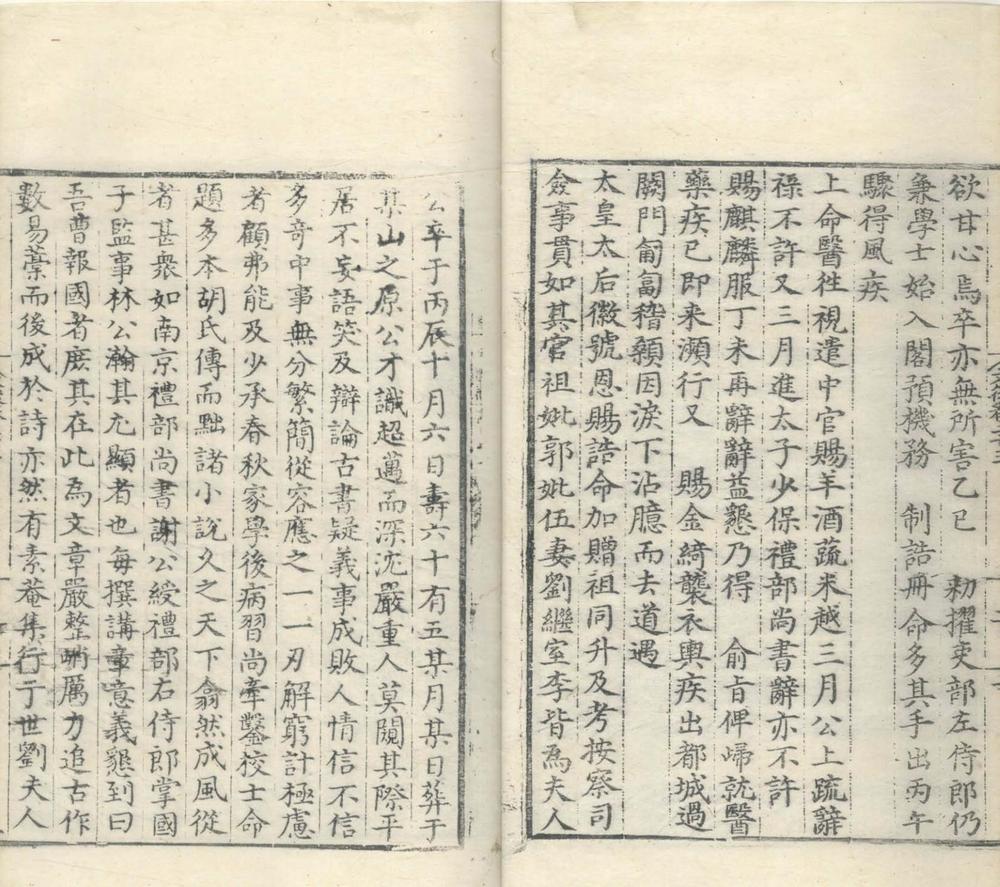 欲甘心焉卒亦無所害乙巳　勑擢吏部左侍郎仍
兼學士始入閣預機務　制誥冊命多其手出丙午
驟得風疾
上命醫徃視遣中官賜羊酒蔬米越三月公上疏辭
祿不許又三月進太子少保禮部尚書辭亦不許
賜麒麟服丁未再辭辭益懇乃得　俞旨俾歸就醫
藥疾已即来瀕行又　賜金綺襲衣輿疾出都城過
闕門匍匐稽顙因淚下沾臆而去道遇
太皇太后徽號恩賜誥命加贈祖同升及考按察司
僉事貫如其官祖妣郭妣伍妻劉繼室李皆爲夫人
公卒于丙辰十月六日壽六十有五某月某日葬于
某山之原公才識超邁而深沈嚴重人莫闚其際平
居不妄語笑及辯論古書疑義事成敗人情信不信
多竒中事無分繁簡從容應之一一刃解窮計極慮
者顧弗能及少承春秋家學後病習尚牽鑿校士命
題多本胡氏傳而黜諸小說久之天下翕然成風從
者甚衆如南京禮部尚書謝公綬禮部右侍郎掌國
子監事林公瀚其尤顯者也每撰講章意義懇到曰
吾曹報國者庶其在此爲文章嚴整峭厲力追古作
數易藁而後成於詩亦然有素菴集行于世劉夫人